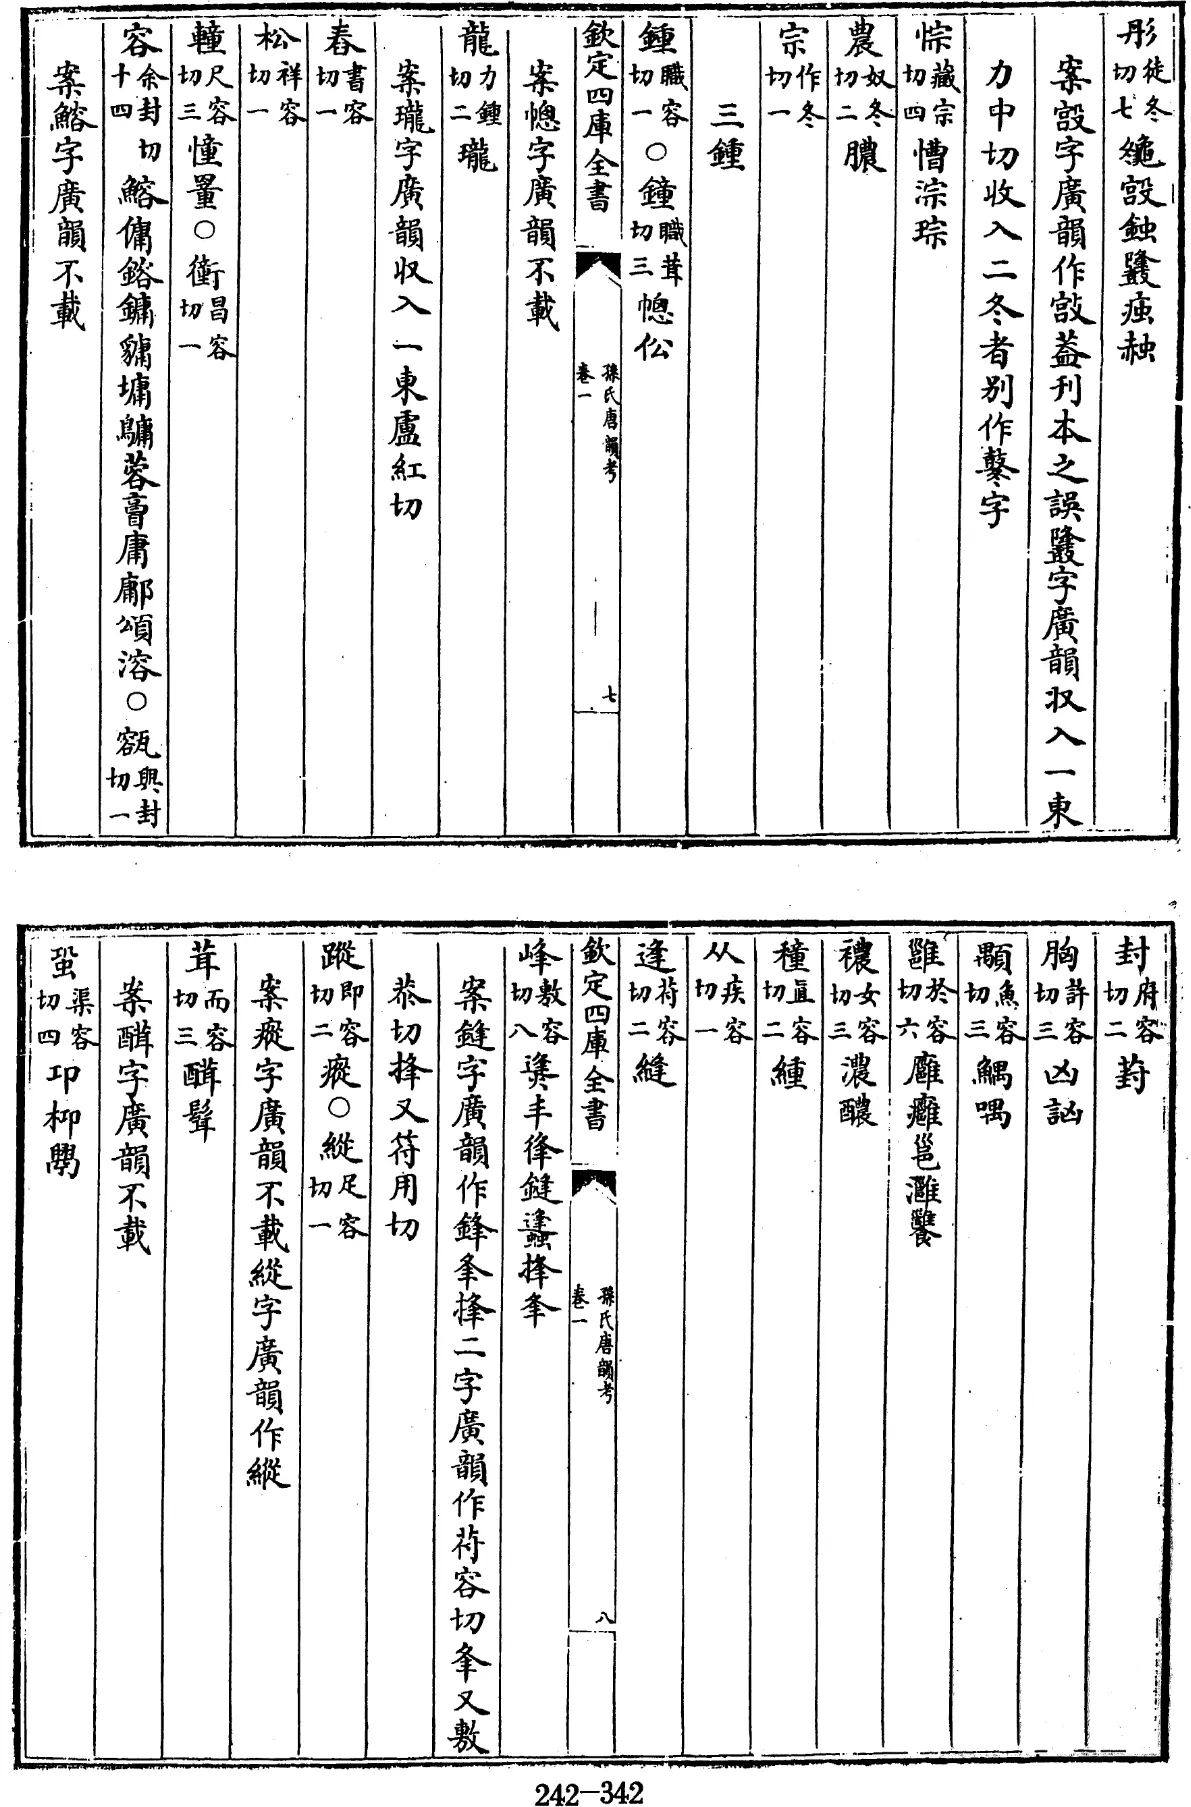 彤徒冬切七鼨設鉵鼟疼赨
案設字廣韻作㪗葢刊本之誤鼟字廣韻収入一東
力中切收入二冬者别作鼕字
悰藏宗切四慒淙琮
農奴冬切二膿
宗作冬切一
三鍾
鍾職容切一○鐘職茸切三幒伀
欽定四庫全書
孫氏唐韻考
卷一
七
案幒字廣韻不載
龍力鍾切二瓏
案瓏字廣韻収入一東盧紅切
舂書容切一
松祥容切一
幢尺容切三憧罿○衝昌容切一
容余封切十四鰫傭鎔鏞貓墉鷛蓉㐯庸鄘頌溶○㼸與封切一
案鰫字廣韻不載
封府容切二葑
胸許容切三凶訩
顒魚容切三鰅喁
雝於容切六廱癰邕灉饔
襛女容切三濃醲
種直容切二緟
从疾容切一
逢符容切二縫
欽定四庫全書
孫氏唐韻考
卷一
八
峰敷容切八㷭丰夆鏠蠭捀夆
案鏠字廣韻作鋒夆捀二字廣韻作符容切夆又敷
恭切捀又符用切
蹤即容切二瘲○縱足容切一
案瘲字廣韻不載縱字廣韻作縱
茸而容切三醏髶
案醏字廣韻不載
蛩渠容切四卭枊䳍
242-342